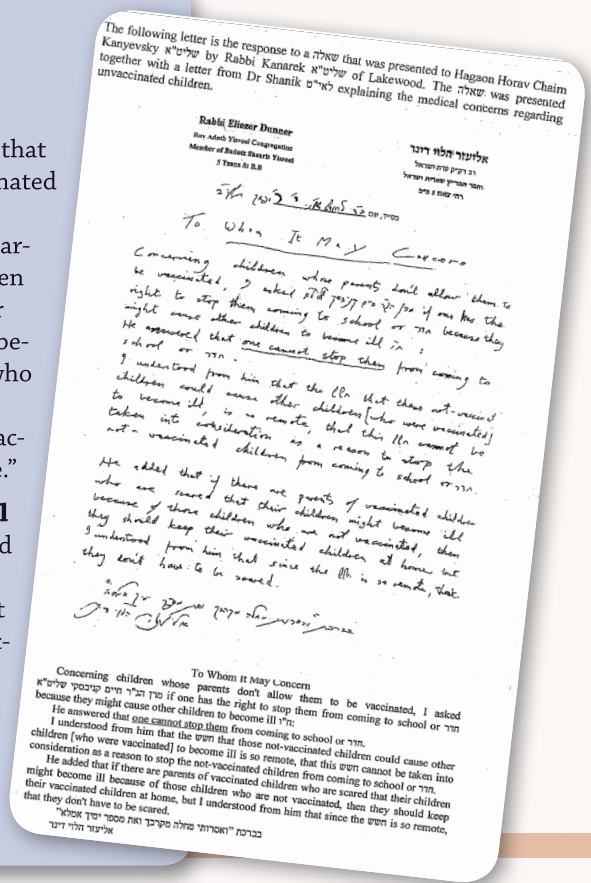 that
nated
ar-
en
r
be-
who
ac-
e.”
l
d
t
t-
The following letter is the response to a שאלה that was presented to Hagaon Horav Chaim
Kanyevsky שליט"א by Rabbi Kanarek שליט"א of Lakewood. The שאלה was presented
together with a letter from Dr Shanik לאי"ט explaining the medical concerns regarding
unvaccinated children.
Rabbi Eliezer Dunner
Rav Adath Yisroel Congregation
Member of Badatz Shearis Yisroel
5 Trana St B.B
אליעזר הלוי דינר
רב דק"ק עדת ישראל
חבר הבד"ץ שארית ישראל
בסי"ד, עש
To Whom It May Concern
Concerning children whose parents don't allow them to
be vaccinated, I asked מרן הג"ר חיים קניבסקי שליט"א if one has the
right to stop them coming to school or חדר because they
might cause other children to become ill ח"ו :
He answered that one cannot stop them from coming to
school or חדר.
I understood from him that the חשש that these not-vaccinated
children could cause other children [who were vaccinated]
to become ill, is so remote, that this חשש cannot be
taken into consideration as a reason to stop the
not-vaccinated children from coming to school or חדר.
He added that if there are parents of vaccinated children
who are scared that their children might become ill
because of those children who are not vaccinated, then
they should keep their vaccinated children at home but
I understood from him that since the חשש is so remote, that
they don't have to be scared.
To Whom It May Concern
Concerning children whose parents don't allow them to be vaccinated, I asked
מרן הג"ר חיים קניבסקי שליט"א if one has the right to stop them from coming to school or חדר
because they might cause other children to become ill ח"ו:
He answered that one cannot stop them from coming to school or חדר.
I understood from him that the חשש that those not-vaccinated children could cause other
children [who were vaccinated] to become ill is so remote, that this חשש cannot be taken into
consideration as a reason to stop the not-vaccinated children from coming to school or חדר.
He added that if there are parents of vaccinated children who are scared that their children
might become ill because of those children who are not vaccinated, then they should keep
their vaccinated children at home, but I understood from him that since the חשש is so remote,
that they don't have to be scared.
בברכת "ואסרותי מחלה מקרבך ואת מספר ימיך אמלא"
אליעזר הלוי דינר